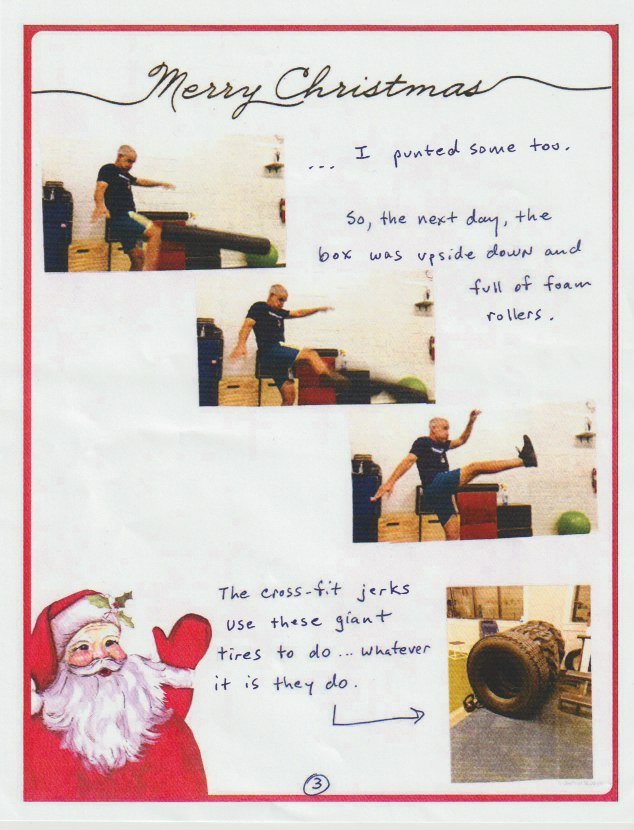 Merry Christmas
... I punted some too.
So, the next day, the
box was upside down and
full of foam
rollers.
The cross-fit jerks
use these giant
tires to do... whatever
it is they do.
3